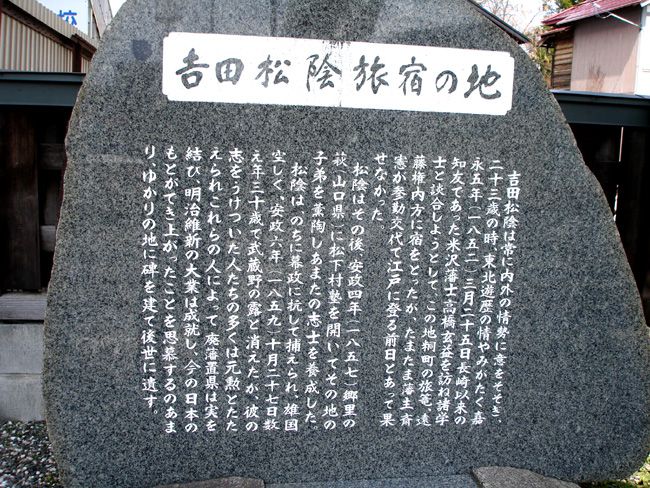 吉田松陰旅宿の地
吉田松陰は常に内外の情勢に意をそそぎ、
二十三歳の時、東北遊歴の情やみがたく、嘉
永五年(一八五二)三月二十五日長崎以来の
知友であった米沢藩士高橋玄益を訪ね諸学
士と談合しようとして、この地粡町の旅篭、遠
藤権内方に宿をとったが、たまたま藩主斉
憲が参勤交代で江戸に登る前日とあって果
せなかった。
松陰はその後、安政四年(一八五七)郷里の
萩(山口県)に松下村塾を開いてその地の
子弟を薫陶しあまたの志士を養成した。
松陰は、のちに幕政に抗して捕えられ、雄図
空しく、安政六年(一八五九)十月二十七日数
え年三十歳で武蔵野の露と消えたが、彼の
志をうけついだ人たちの多くは元勲とたた
えられこれらの人によって廃藩置県は実を
結び、明治維新の大業は成就し、今の日本の
もとができ上がったことを思慕するのあま
り、ゆかりの地に碑を建て後世に遺す。